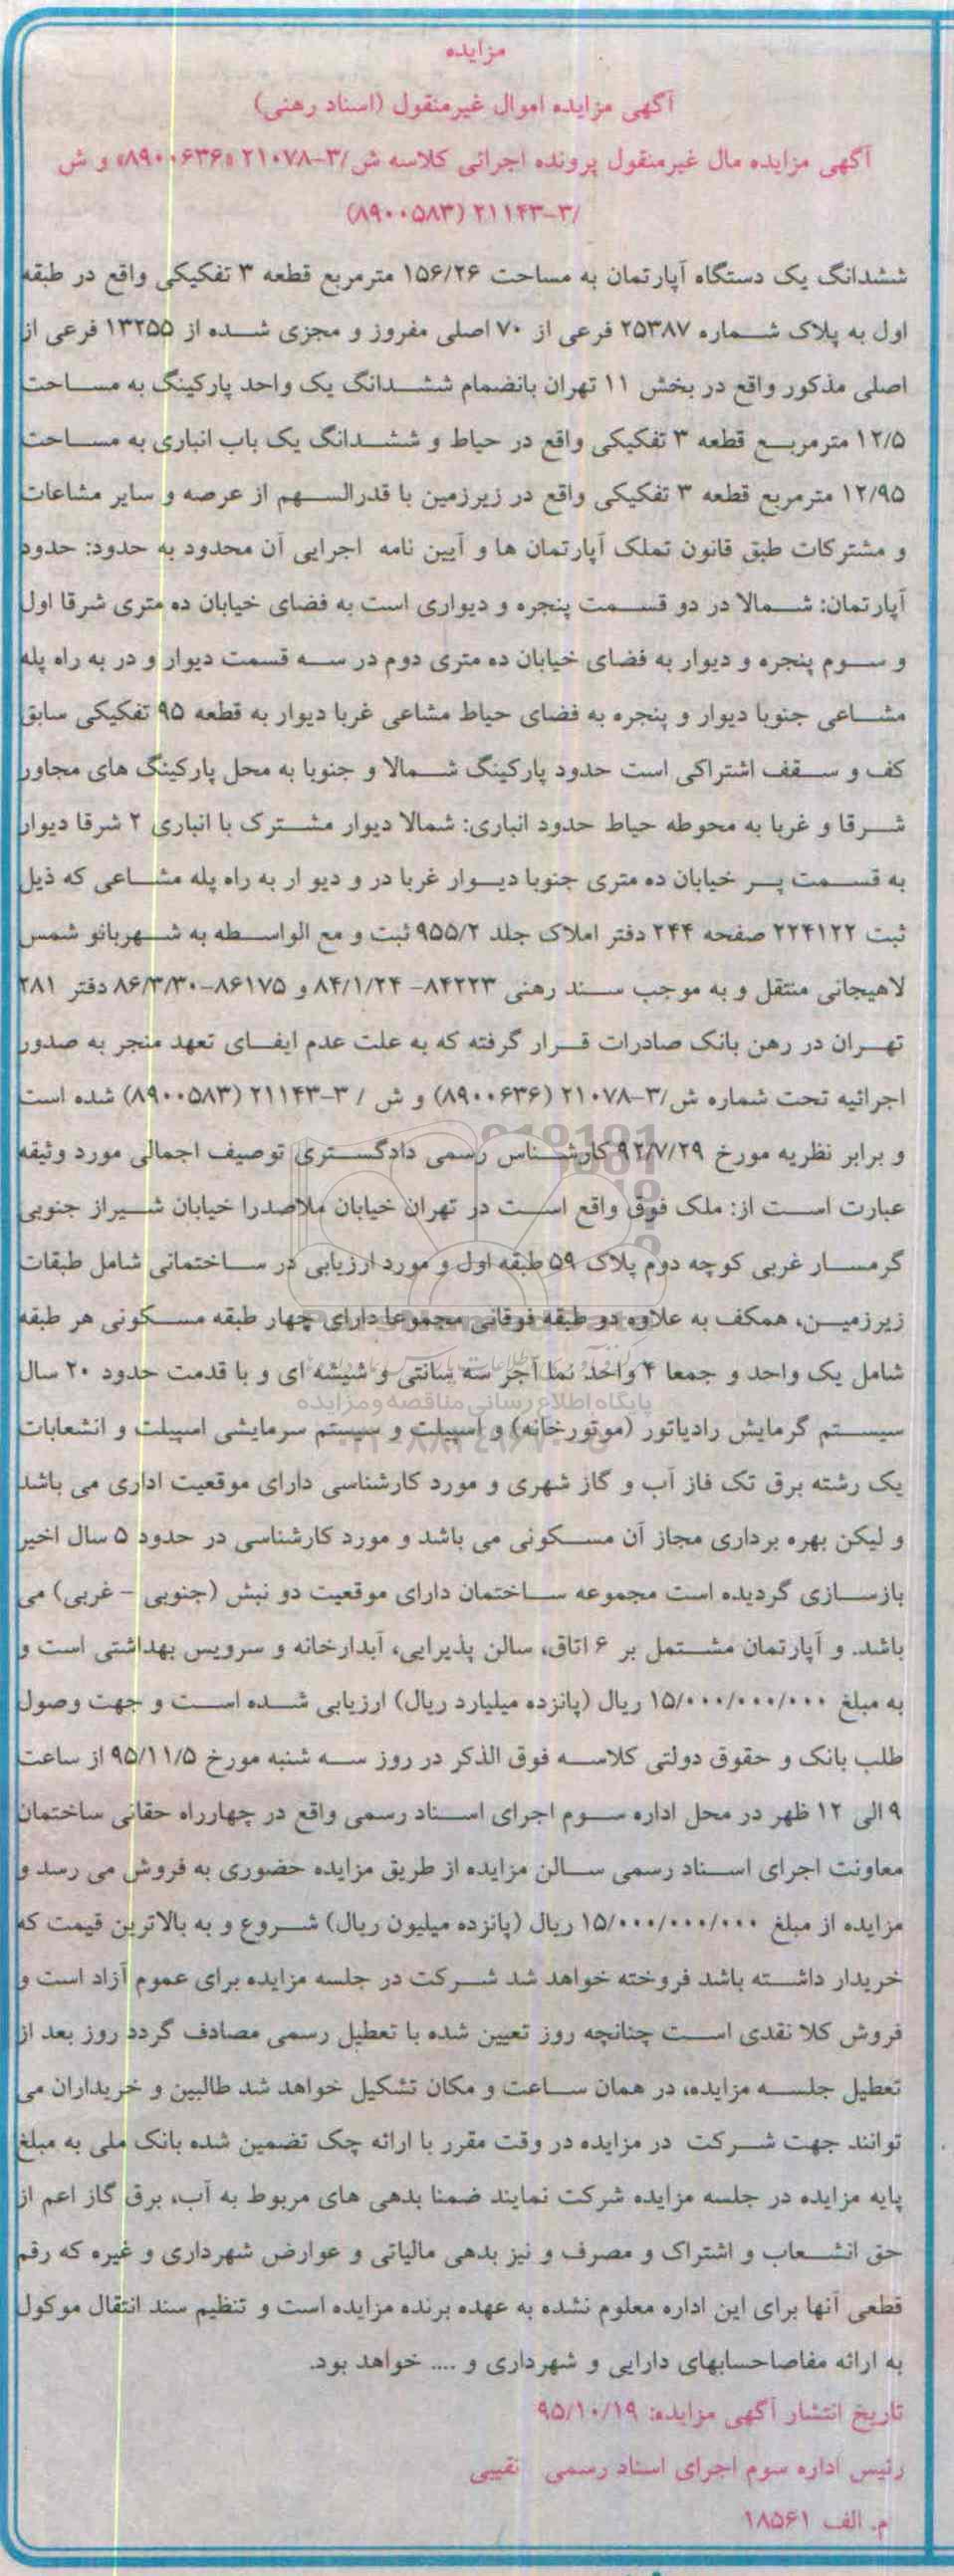 مزایده
آگهی مزایده اموال غیرمنقول (اسناد رهنی)
آگهی مزایده مال غیرمنقول پرونده اجرائی کلاسه ش/۳-۲۱۰۷۸ «۸۹۰۰۶۳۶» و ش
/۳-۲۱۱۴۳ (۸۹۰۰۵۸۳)
ششدانگ یک دستگاه آپارتمان به مساحت ۱۵۶/۲۶ مترمربع قطعه ۳ تفکیکی واقع در طبقه
اول به پلاک شماره ۲۵۳۸۷ فرعی از ۷۰ اصلی مفروز و مجزی شده از ۱۳۲۵۵ فرعی از
اصلی مذکور واقع در بخش ۱۱ تهران بانضمام ششدانگ یک واحد پارکینگ به مساحت
۱۲/۵ مترمربع قطعه ۳ تفکیکی واقع در حیاط و ششدانگ یک باب انباری به مساحت
۱۲/۹۵ مترمربع قطعه ۳ تفکیکی واقع در زیرزمین با قدرالسهم از عرصه و سایر مشاعات
و مشترکات طبق قانون تملک آپارتمان ها و آیین نامه اجرایی آن محدود به حدود: حدود
آپارتمان: شمالا در دو قسمت پنجره و دیواری است به فضای خیابان ده متری شرقا اول
و سوم پنجره و دیوار به فضای خیابان ده متری دوم در سه قسمت دیوار و در به راه پله
مشاعی جنوبا دیوار و پنجره به فضای حیاط مشاعی غربا دیوار به قطعه ۹۵ تفکیکی سابق
کف و سقف اشتراکی است حدود پارکینگ شمالا و جنوبا به محل پارکینگ های مجاور
شرقا و غربا به محوطه حیاط حدود انباری: شمالا دیوار مشترک با انباری ۲ شرقا دیوار
به قسمت پر خیابان ده متری جنوبا دیوار غربا در و دیو ار به راه پله مشاعی که ذیل
ثبت ۲۲۴۱۲۲ صفحه ۲۴۴ دفتر املاک جلد ۹۵۵/۲ ثبت و مع الواسطه به شهربانو شمس
لاهیجانی منتقل و به موجب سند رهنی ۸۴۲۲۳- ۸۴/۱/۲۴ و ۸۶۱۷۵-۸۶/۳/۳۰ دفتر ۲۸۱
تهران در رهن بانک صادرات قرار گرفته که به علت عدم ایفای تعهد منجر به صدور
اجرائیه تحت شماره ش/۳-۲۱۰۷۸ (۸۹۰۰۶۳۶) و ش / ۳-۲۱۱۴۳ (۸۹۰۰۵۸۳) شده است
و برابر نظریه مورخ ۹۲/۷/۲۹ کارشناس رسمی دادگستری توصیف اجمالی مورد وثیقه
عبارت است از: ملک فوق واقع است در تهران خیابان ملاصدرا خیابان شیراز جنوبی
گرمسار غربی کوچه دوم پلاک ۵۹ طبقه اول و مورد ارزیابی در ساختمانی شامل طبقات
زیرزمین، همکف به علاوه دو طبقه فوقانی مجموعا دارای چهار طبقه مسکونی هر طبقه
شامل یک واحد و جمعا ۴ واحد نما آجر سه سانتی و شیشه ای و با قدمت حدود ۲۰ سال
پایگاه اطلاع رسانی مناقصه و مزایده
سیستم گرمایش رادیاتور (موتورخانه) و اسپیلت و سیستم سرمایشی اسپیلت و انشعابات
یک رشته برق تک فاز آب و گاز شهری و مورد کارشناسی دارای موقعیت اداری می باشد
و لیکن بهره برداری مجاز آن مسکونی می باشد و مورد کارشناسی در حدود ۵ سال اخیر
بازسازی گردیده است مجموعه ساختمان دارای موقعیت دو نبش (جنوبی - غربی) می
باشد. و آپارتمان مشتمل بر ۶ اتاق، سالن پذیرایی، آبدارخانه و سرویس بهداشتی است و
به مبلغ ۱۵/۰۰۰/۰۰۰/۰۰۰ ریال (پانزده میلیارد ریال) ارزیابی شده است و جهت وصول
طلب بانک و حقوق دولتی کلاسه فوق الذکر در روز سه شنبه مورخ ۹۵/۱۱/۵ از ساعت
۹ الی ۱۲ ظهر در محل اداره سوم اجرای اسناد رسمی واقع در چهارراه حقانی ساختمان
معاونت اجرای اسناد رسمی سالن مزایده از طریق مزایده حضوری به فروش می رسد و
مزایده از مبلغ ۱۵/۰۰۰/۰۰۰/۰۰۰ ریال (پانزده میلیون ریال) شروع و به بالاترین قیمت که
خریدار داشته باشد فروخته خواهد شد شرکت در جلسه مزایده برای عموم آزاد است و
فروش کلا نقدی است چنانچه روز تعیین شده با تعطیل رسمی مصادف گردد روز بعد از
تعطیل جلسه مزایده، در همان ساعت و مکان تشکیل خواهد شد طالبین و خریداران می
توانند جهت شرکت در مزایده در وقت مقرر با ارائه چک تضمین شده بانک ملی به مبلغ
پایه مزایده در جلسه مزایده شرکت نمایند ضمنا بدهی های مربوط به آب، برق گاز اعم از
حق انشعاب و اشتراک و مصرف و نیز بدهی مالیاتی و عوارض شهرداری و غیره که رقم
قطعی آنها برای این اداره معلوم نشده به عهده برنده مزایده است و تنظیم سند انتقال موکول
به ارائه مفاصاحسابهای دارایی و شهرداری و .... خواهد بود.
تاریخ انتشار آگهی مزایده: ۹۵/۱۰/۱۹
رئیس اداره سوم اجرای اسناد رسمی نقیبی
م. الف ۱۸۵۶۱